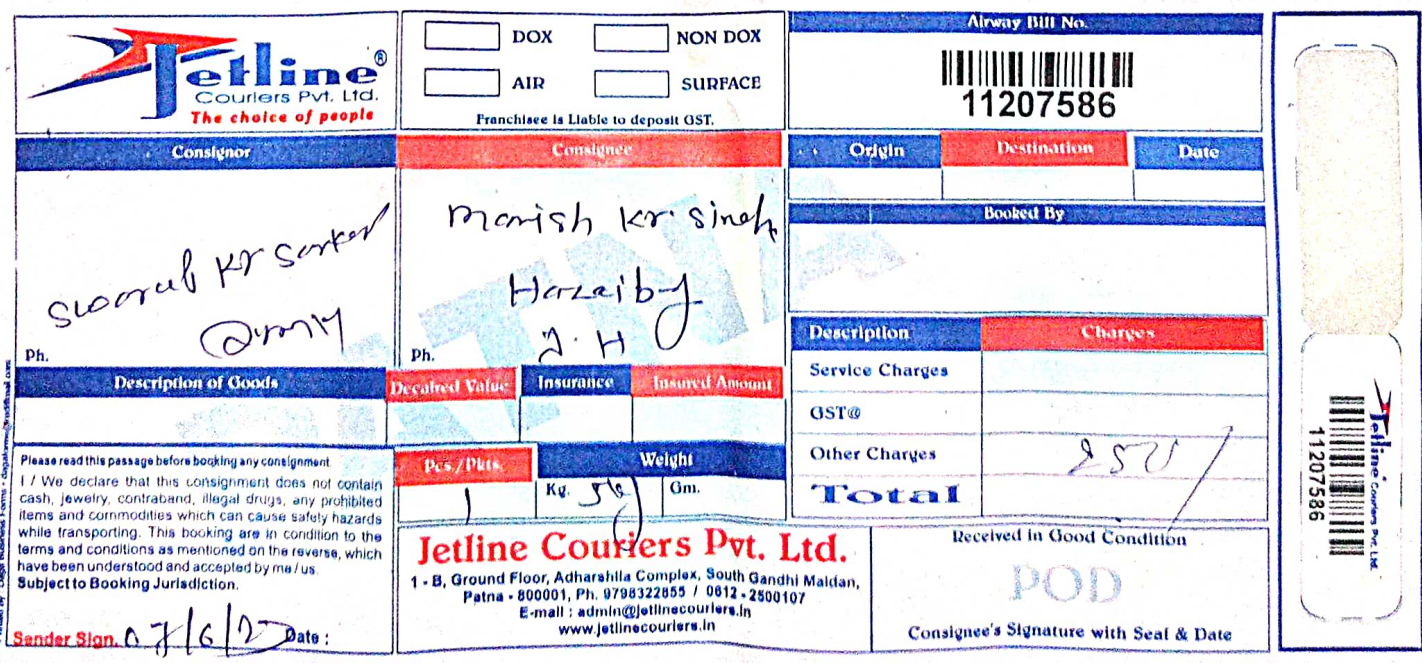 Jetline®
Couriers Pvt. Ltd.
The choice of people
DOX
NON DOX
AIR
SURFACE
Franchisee is Liable to deposit GST.
Airway Bill No.
11207586
Consignor
Kr Sarker
Ph.
Consignee
Manish Kr. Singh
J.H
Ph.
Origin
Destination
Date
Booked By
Description of Goods
Decalred Value
Insurance
Insured Amount
Description
Charges
Service Charges
GST@
Other Charges
250
Total
Please read this passage before booking any consignment.
I / We declare that this consignment does not contain
cash, jewelry, contraband, illegal drugs, any prohibited
items and commodities which can cause safety hazards
while transporting. This booking are in condition to the
terms and conditions as mentioned on the reverse, which
have been understood and accepted by me / us.
Subject to Booking Jurisdiction.
Sender Sign.
Date :
Pcs./Pkts.
1
Weight
Kg.
Gm.
Jetline Couriers Pvt. Ltd.
1 - B, Ground Floor, Adharshila Complex, South Gandhi Maidan,
Patna - 800001, Ph. 9798322855 / 0612 - 2500107
E-mail : admin@jetlinecouriers.in
www.jetlinecouriers.in
Received in Good Condition
POD
Consignee's Signature with Seal & Date
Jetline
Couriers Pvt. Ltd.
11207586